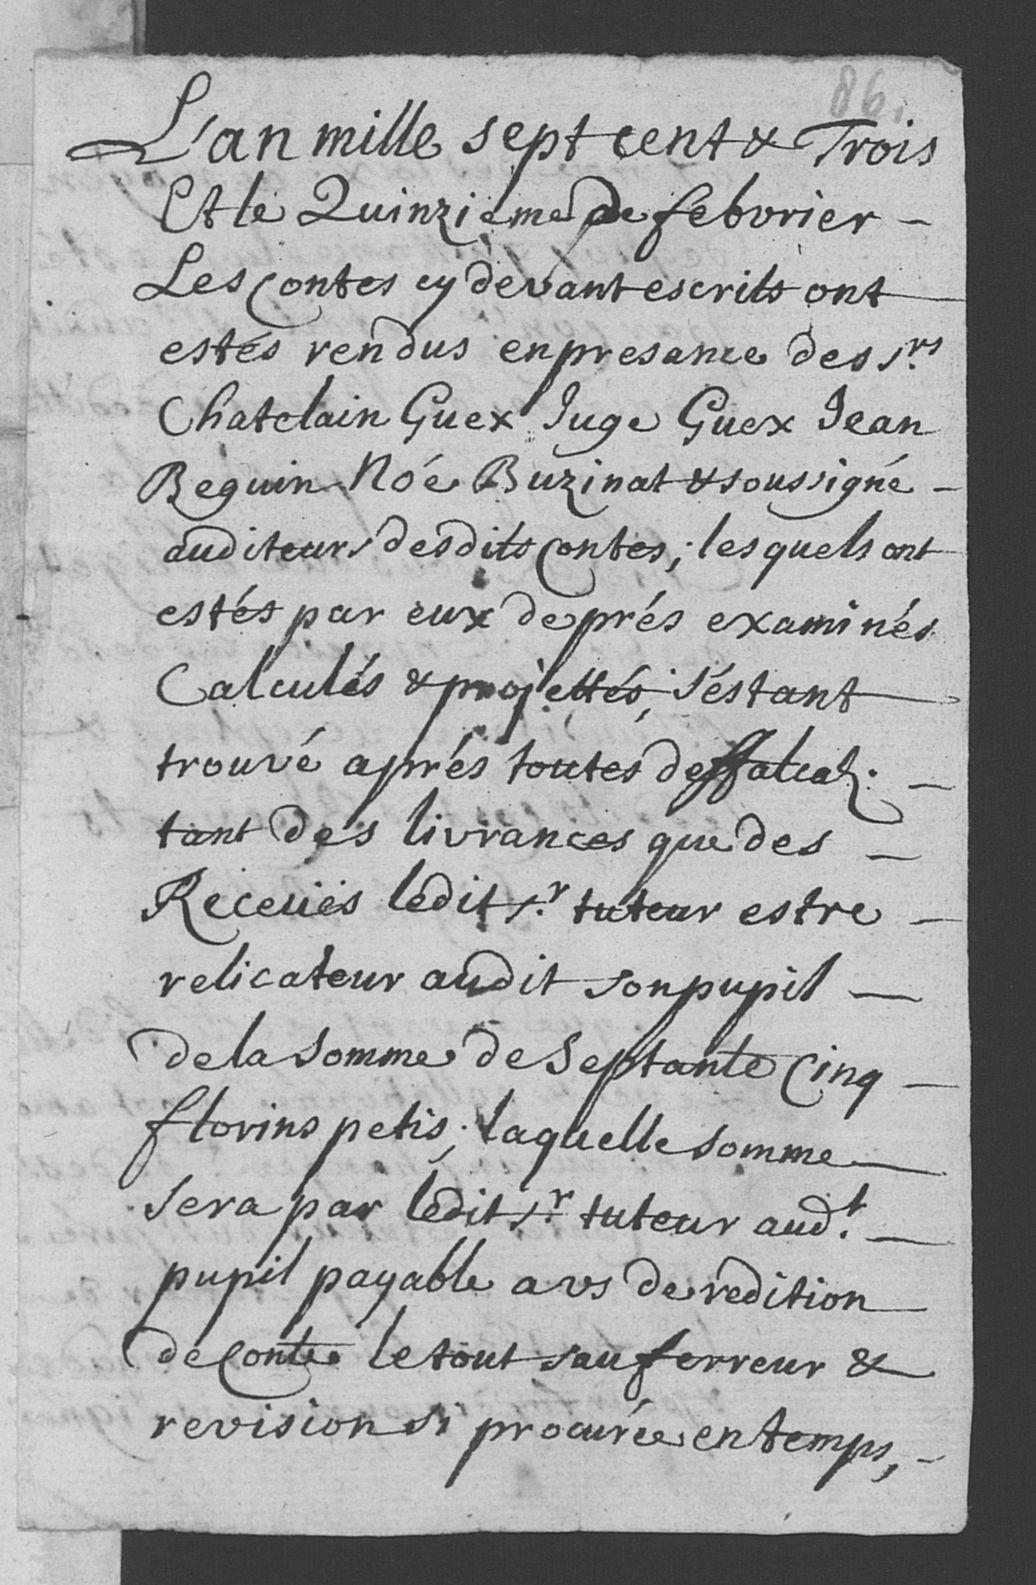 86.
L'an mille sept cent & Trois
Et le Quinzieme de febvrier -
Les Contes cy devant escrits ont
estés rendus en presance des srs
Chatelain Guex Juge Guex Jean
Beguin Noé Buzinat & soussigné -
auditeurs desdits Contes; lesquels ont
estés par eux de prés examinés
Calculés & projettés; s'éstant
trouvé aprés toutes deffalca͠n. -
tant des livrances que des -
Receuës ledit sr. tuteur estre -
relicateur audit son pupil -
de la somme de Septante Cinq -
florins petis; laquelle somme -
sera par ledit sr. tuteur audt. -
pupil payable avs de redition
de Conte le tout sauf erreur &
revision si procurée en temps, -